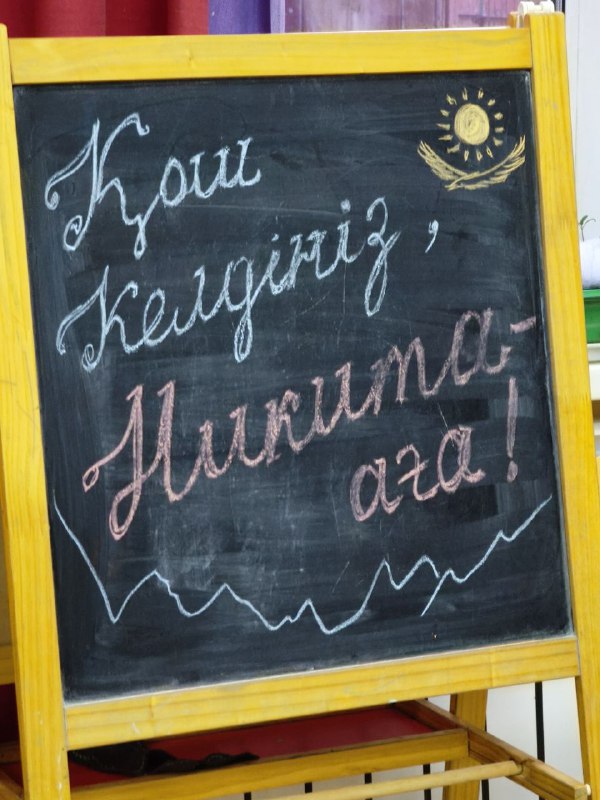 Қош
Келдіңіз,
Никита-
аға!